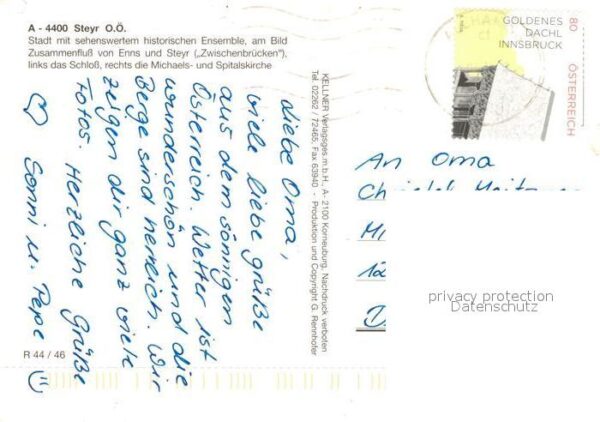 A - 4400 Steyr O.Ö.
Stadt mit sehenswertem historischen Ensemble, am Bild
Zusammenfluß von Enns und Steyr („Zwischenbrücken“),
links das Schloß, rechts die Michaels- und Spitalskirche
liebe Oma,
viele liebe grüße
aus dem sonnigen
Österreich. Wetter ist
wunderschön und die
Berge sind herrlich. Wir
zeigen dir ganz viele
Fotos. Herzliche Grüße
♡ Sonni u. Pepe
R 44 / 46
KELLNER Verlagsges.m.b.H., A- 2100 Korneuburg. Nachdruck verboten
Tel. 02262 / 72465, Fax 63940 - Produktion und Copyright G. Rennhofer
GOLDENES
DACHL
INNSBRUCK
80
ÖSTERREICH
An Oma
privacy protection
Datenschutz